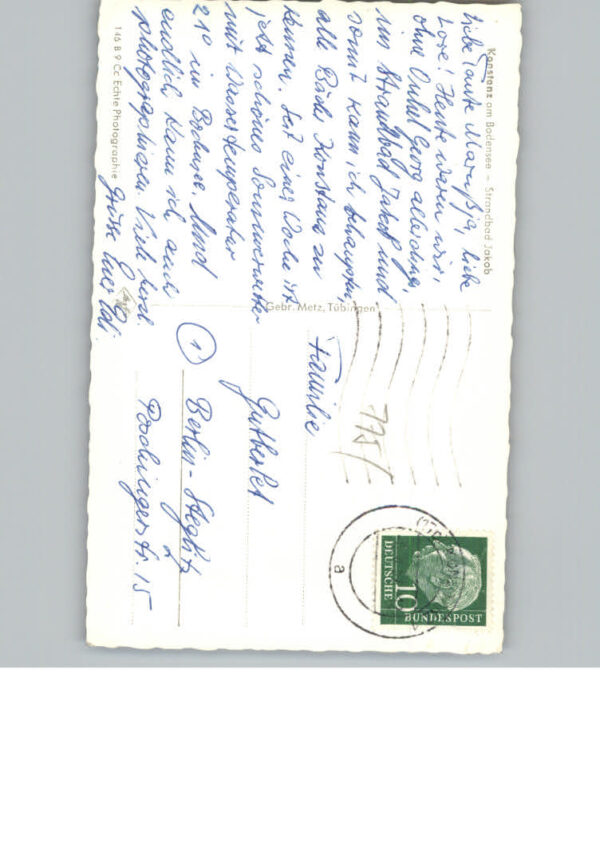 Konstanz am Bodensee – Strandbad Jakob
Liebe Tante liebe
Lore! Heute waren wir,
ohne Onkel Georg allerdings,
im Strandbad Jakob und
somit kann ich behaupten,
alle Bäder Konstanz zu
kennen. Seit einer Woche ist
jetzt schönes Sommerwetter
mit Wassertemperatur
21° im Bodensee. Und
endlich kann ich auch
photographieren. Viele herzl.
Grüße Euer
146 B 9 Cc Echte Photographie
Gebr. Metz, Tübingen
Familie
Gutbertlet
1
Berlin-Steglitz
Poschingerstr. 15
775/
a
DEUTSCHE
10
BUNDESPOST